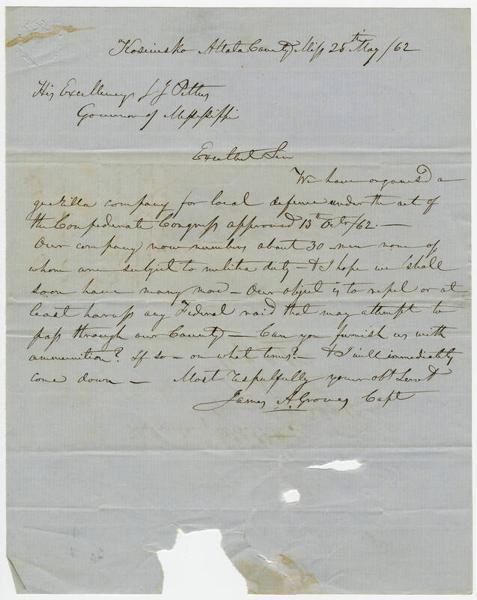 Kosciusko Attala County Miss 25th May /62
His Excellency J J Pettus
Governor of Mississippi
Excellent Sir
We have organised a
guerilla company for local defence under the act of
the Confederate Congress approved 13th Octr/62. —
Our company now numbers about 30 men none of
whom are subject to militia duty — & I hope we shall
soon have many more — Our object is to repel or at
least harass any Federal raid that may attempt to
pass through our County — Can you furnish us with
ammunition? If so — on what terms? — & I will immediately
come down — Most respectfully your obt Servt
James A. Groves Capt